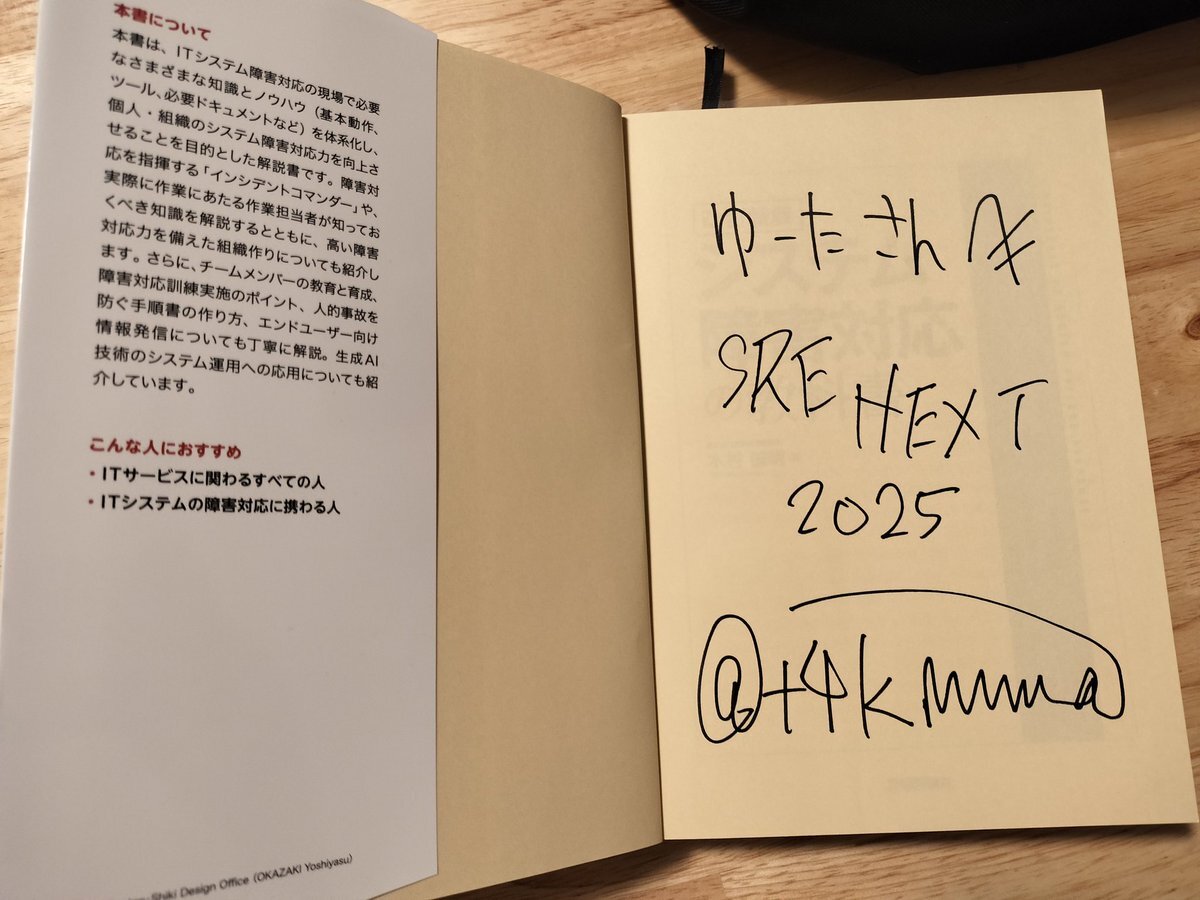 本書について
本書は、ITシステム障害対応の現場で必要
なさまざまな知識とノウハウ（基本動作、
ツール、必要ドキュメントなど）を体系化し、
個人・組織のシステム障害対応力を向上さ
せることを目的とした解説書です。障害対
応を指揮する「インシデントコマンダー」や、
実際に作業にあたる作業担当者が知ってお
くべき知識を解説するとともに、高い障害
対応力を備えた組織作りについても紹介し
ます。さらに、チームメンバーの教育と育成、
障害対応訓練実施のポイント、人的事故を
防ぐ手順書の作り方、エンドユーザー向け
情報発信についても丁寧に解説。生成AI
技術のシステム運用への応用についても紹
介しています。
こんな人におすすめ
・ITサービスに関わるすべての人
・ITシステムの障害対応に携わる人
Shiki Design Office (OKAZAKI Yoshiyasu)
ゆーたさんへ
SRE NEXT
2025